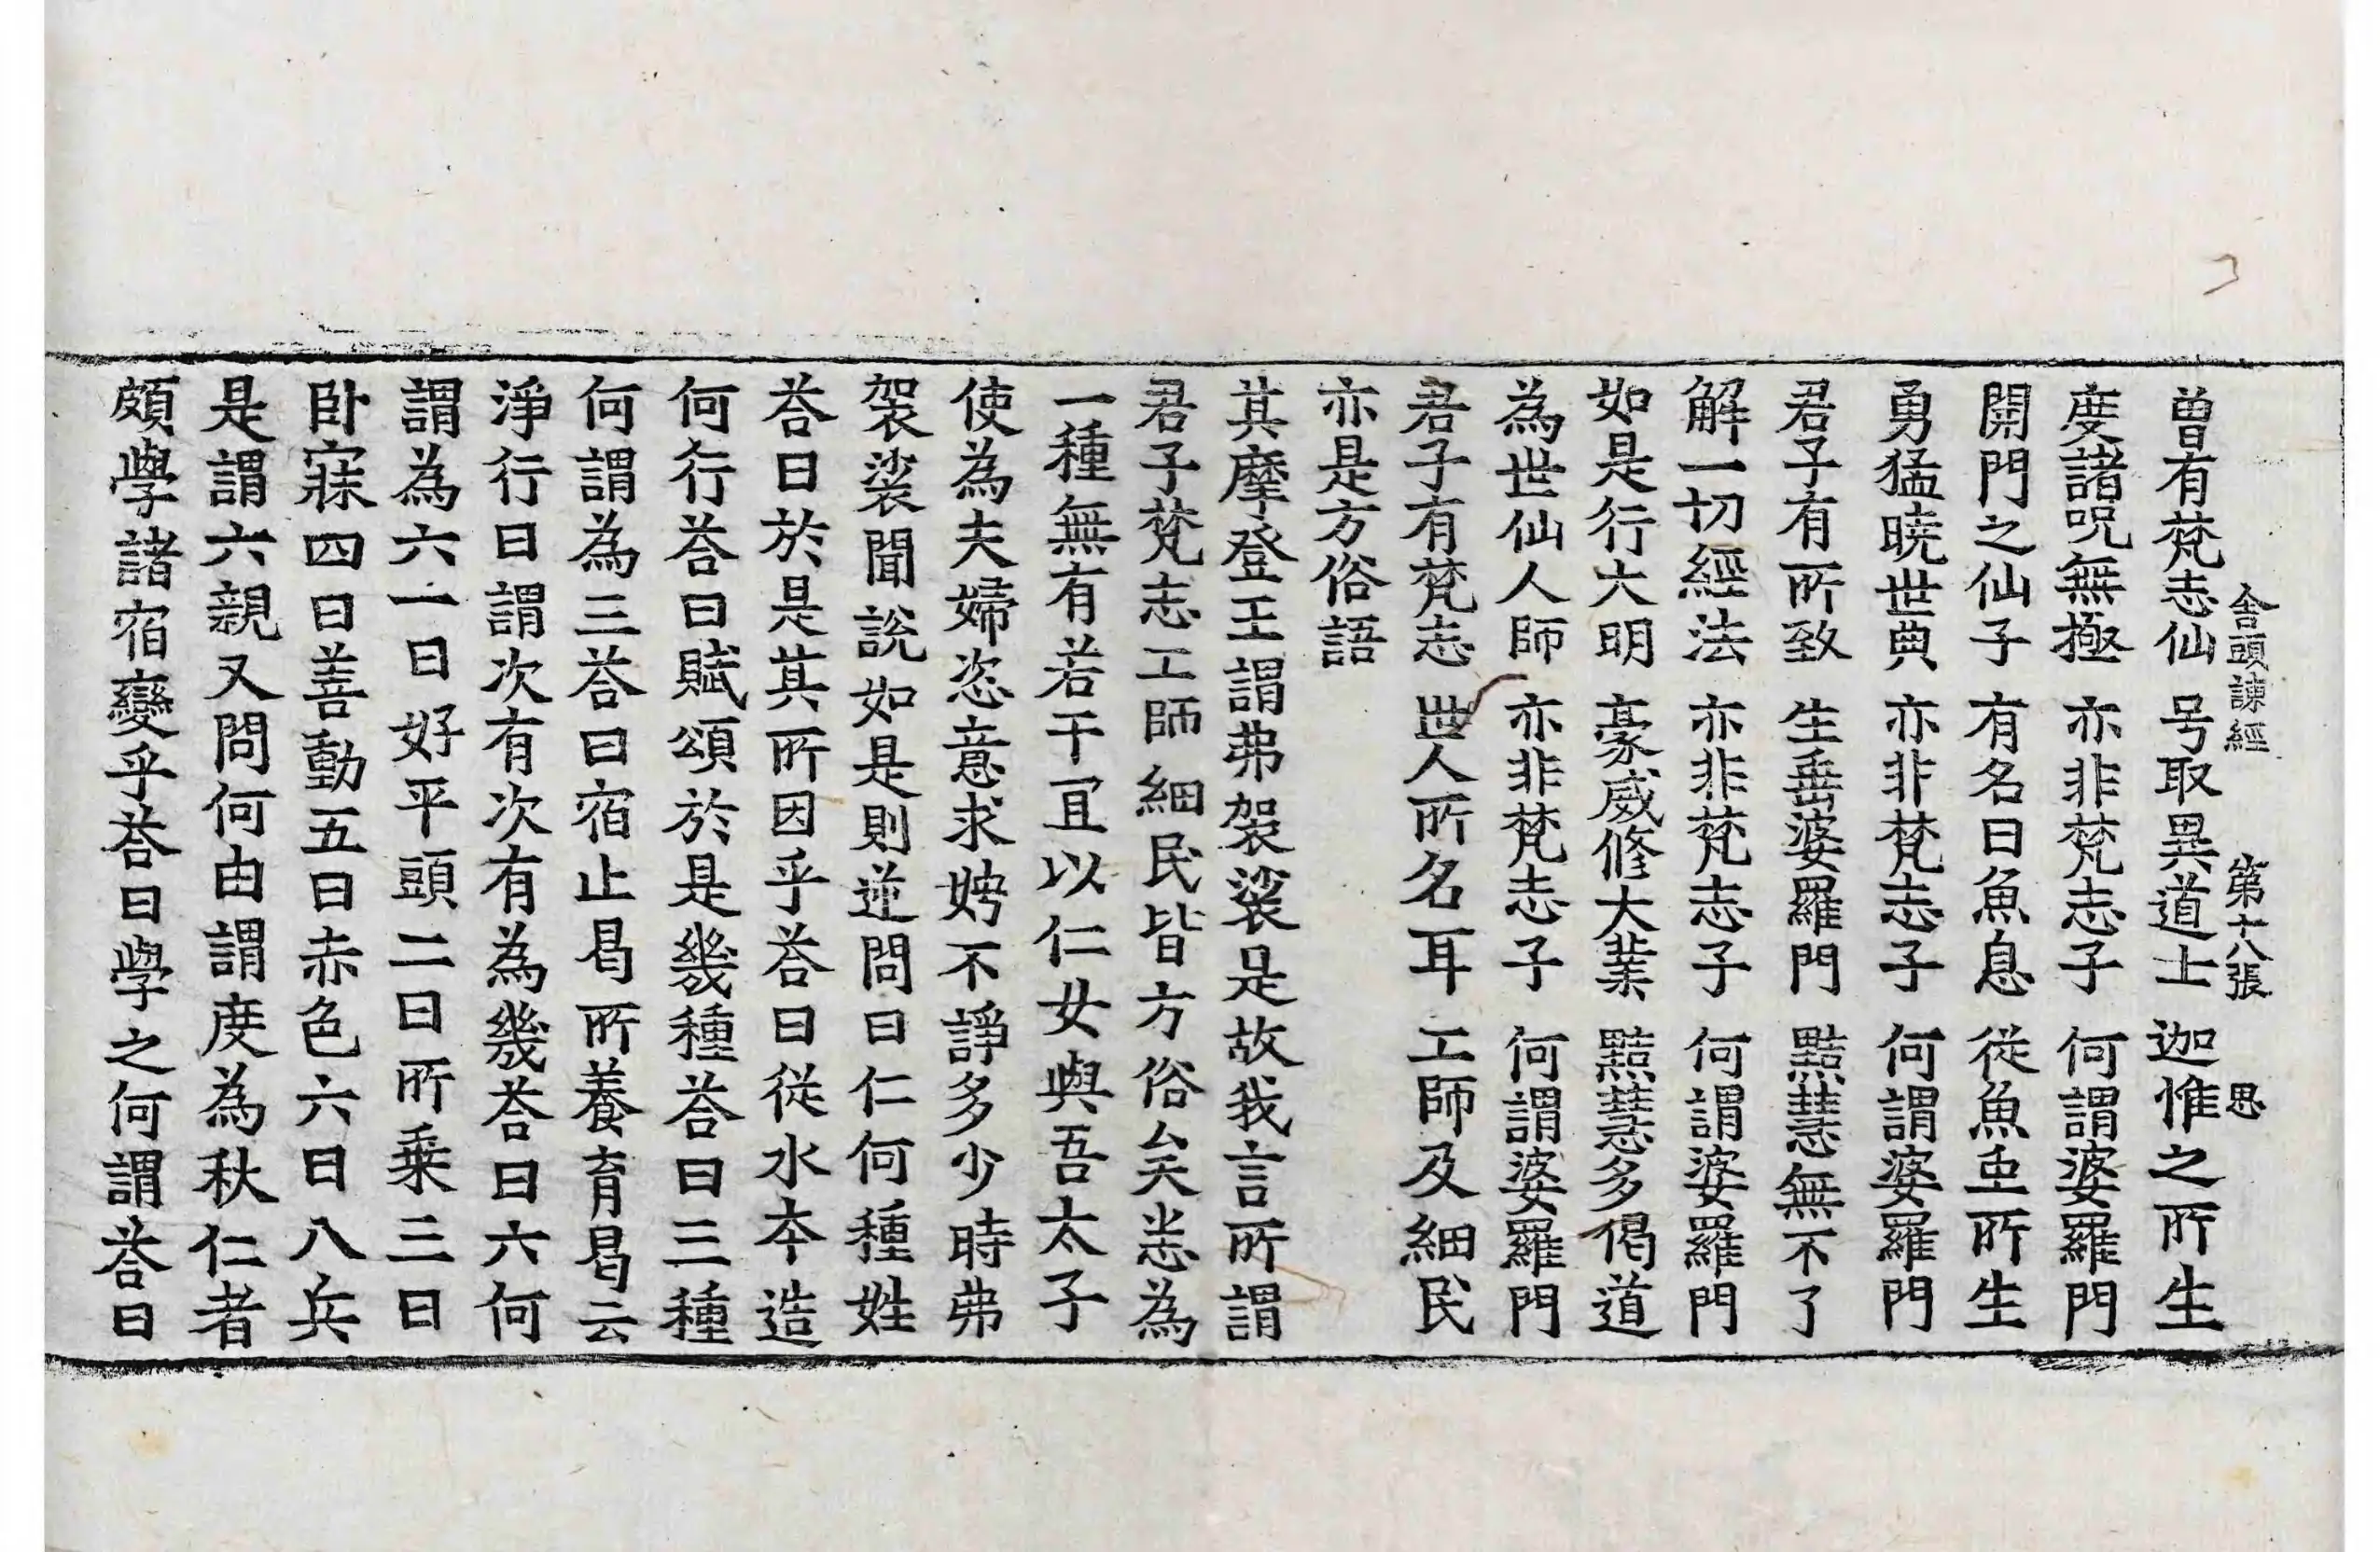 舍頭諫經　第十八張　思
曾有梵志仙　号取異道士　迦惟之所生
度諸呪無極　亦非梵志子　何謂婆羅門
開門之仙子　有名曰魚息　從魚𡈽所生
勇猛曉世典　亦非梵志子　何謂婆羅門
君子有所致　生垂婆羅門　黠慧無不了
解一切經法　亦非梵志子　何謂婆羅門
如是行六明　豪威修大業　黠慧多偈道
為世仙人師　亦非梵志子　何謂婆羅門
君子有梵志　世人所名耳　工師及細民
亦是方俗語
其摩登王謂弗袈裟是故我言所謂
君子梵志工師細民皆方俗矣恙為
一種無有若干冝以仁女與吾太子
使為夫婦恣意求娉不諍多少時弗
袈裟聞說如是則逆問曰仁何種姓
荅曰於是其所因乎荅曰從水夲造
何行荅曰賦頌於是幾種荅曰三種
何謂為三荅曰宿止曷所養育曷云
淨行曰謂次有次有為幾荅曰六何
謂為六一曰好平頭二曰所乗三曰
卧寐四曰善動五曰赤色六曰八兵
是謂六親又問何由謂度為秋仁者
頗學諸宿變乎荅曰學之何謂荅曰